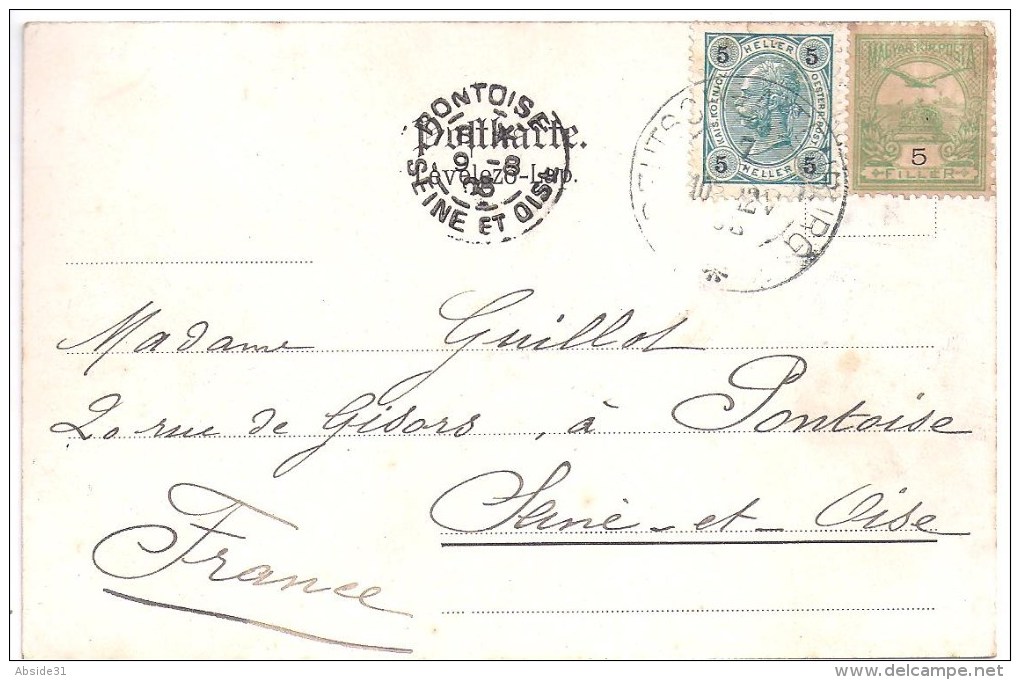 5 HELLER 5
KAIS. KOENIGL. OESTERR. POST
5 HELLER 5
MAGYAR KIR. POSTA
5
FILLÉR
PONTOISE
SEINE ET OISE
Postkarte.
Levelező-Lap.
Madame Guillot
20 rue de Gisors, à Pontoise
Seine-et-Oise
France
Abside31
www.delcampe.net